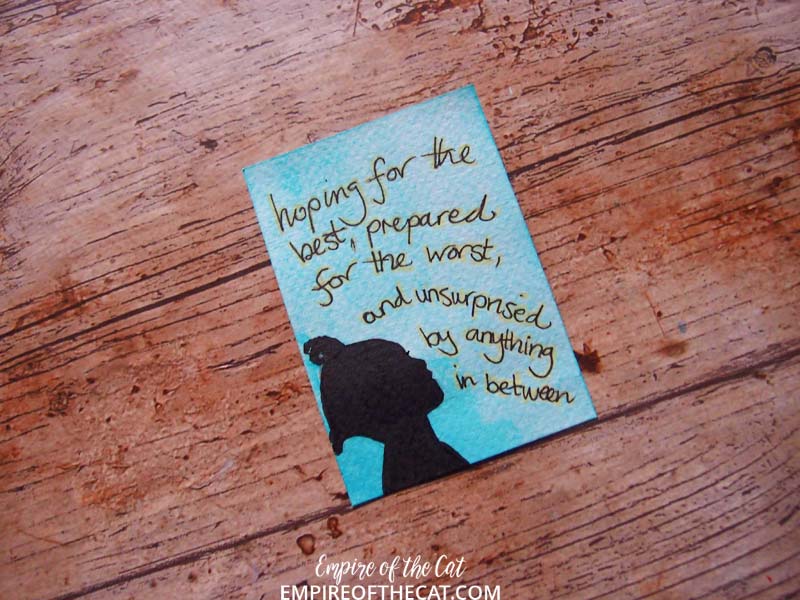 hoping for the
best, prepared
for the worst,
and unsurprised
by anything
in between
Empire of the Cat
EMPIREOFTHECAT.COM